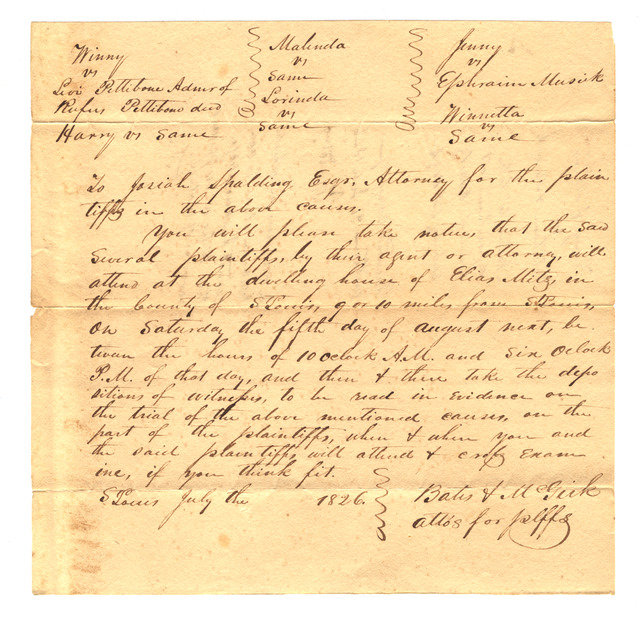 Winny
vs
Levi Pettibone Admr of
Rufus Pettibone decd
Harry vs Same
Malinda
vs
Same
Lorinda
vs
Same
Jenny
vs
Ephraim Musick
Winnetta
vs
Same
To Josiah Spalding Esqr. Attorney for the plain
tiffs in the above causes.
You will please take notice, that the said
several plaintiffs, by their agent or attorney, will
attend at the dwelling house of Elias Mitz, in
the County of St Louis, 9 or 10 miles from St Louis,
on Saturday the fifth day of august next, be
tween the hours of 10 Oclock A.M. and Six Oclock
P.M. of that day, and then & there take the depo
sitions of witnesses, to be read in Evidence on
the trial of the above mentioned causes, on the
part of the plaintiffs, when & where you and
the said plaintiffs will attend & cross Exam
ine, if you think fit.
St Louis July the 1826.
Bates & McGirk
attos for plffs